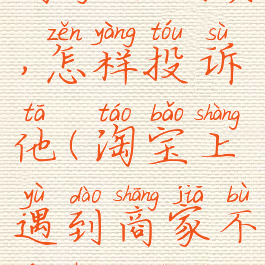 zěn yàng tóu sù
，怎样投诉
tā táo bǎo shàng
他（淘宝上
yù dào shāng jiā bù
遇到商家不